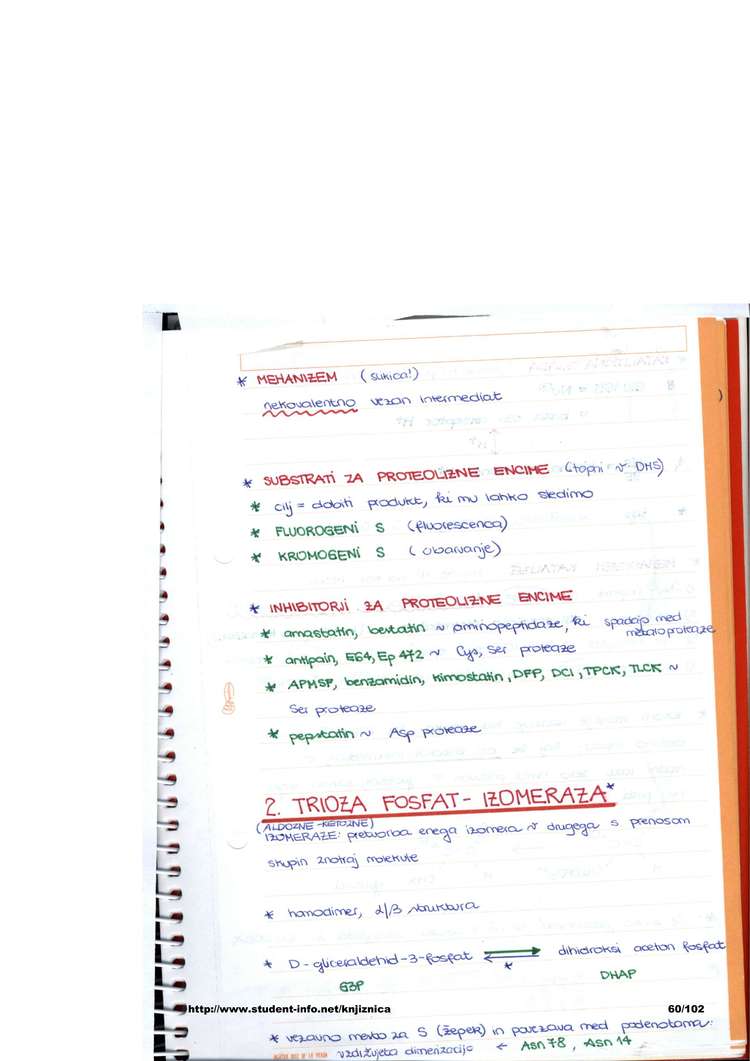 * MEHANIZEM (sukica!)
nekovalentno vezan intermediat
* SUBSTRATI ZA PROTEOLIZNE ENCIME (topni v DMS)
* cilj = dobiti produkt, ki mu lahko sledimo
* FLUOROGENI S (fluorescenca)
* KROMOGENI S (obarvanje)
* INHIBITORJI ZA PROTEOLIZNE ENCIME
* amastatin, bestatin ~ aminopeptidaze, ki spadajo med
metaloproteaze
* antipain, E64, Ep 472 ~ Cys, Ser proteaze
* APMSF, benzamidin, kimostatin, DFP, DCI, TPCK, TLCK ~
Ser proteaze
* pepstatin ~ Asp proteaze
2. TRIOZA FOSFAT - IZOMERAZA*
(ALDOZNE - KETOZNE)
IZOMERAZE: pretvorba enega izomera v drugega s prenosom
skupin znotraj molekule
* homodimer, α/β struktura
* D-gliceraldehid-3-fosfat ⇌ dihidroksi aceton fosfat
*
G3P DHAP
http://www.student-info.net/knjiznica 60/102
* vezavno mesto za S (žepek) in povezava med podenotama:
vzdržujeta dimerizacijo ← Asn 78, Asn 14